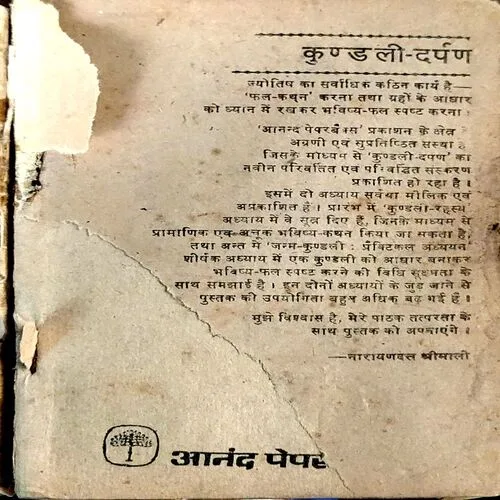 कुण्डली-दर्पण
ज्योतिष का सर्वाधिक कठिन कार्य है—
'फल-कथन' करना तथा ग्रहों के आधार
को ध्यान में रखकर भविष्य-फल स्पष्ट करना।
'आनन्द पेपरबैक्स' प्रकाशन के क्षेत्र में
अग्रणी एवं सुप्रतिष्ठित संस्था है
जिसके माध्यम से 'कुण्डली-दर्पण' का
नवीन परिवर्तित एवं परिवर्द्धित संस्करण
प्रकाशित हो रहा है।
इसमें दो अध्याय सर्वथा मौलिक एवं
अप्रकाशित हैं। प्रारंभ में 'कुण्डली-रहस्य'
अध्याय में वे सूत्र दिए हैं, जिनके माध्यम से
प्रामाणिक एवं अचूक भविष्य-कथन किया जा सकता है,
तथा अन्त में 'जन्म-कुण्डली : प्रैक्टिकल अध्ययन'
शीर्षक अध्याय में एक कुण्डली को आधार बनाकर
भविष्य-फल स्पष्ट करने की विधि सूक्ष्मता के
साथ समझाई है। इन दोनों अध्यायों के जुड़ जाने से
पुस्तक की उपयोगिता बहुत अधिक बढ़ गई है।
मुझे विश्वास है, मेरे पाठक तत्परता के
साथ पुस्तक को अपनाएंगे।
—नारायणदत्त श्रीमाली
आनंद पेपर